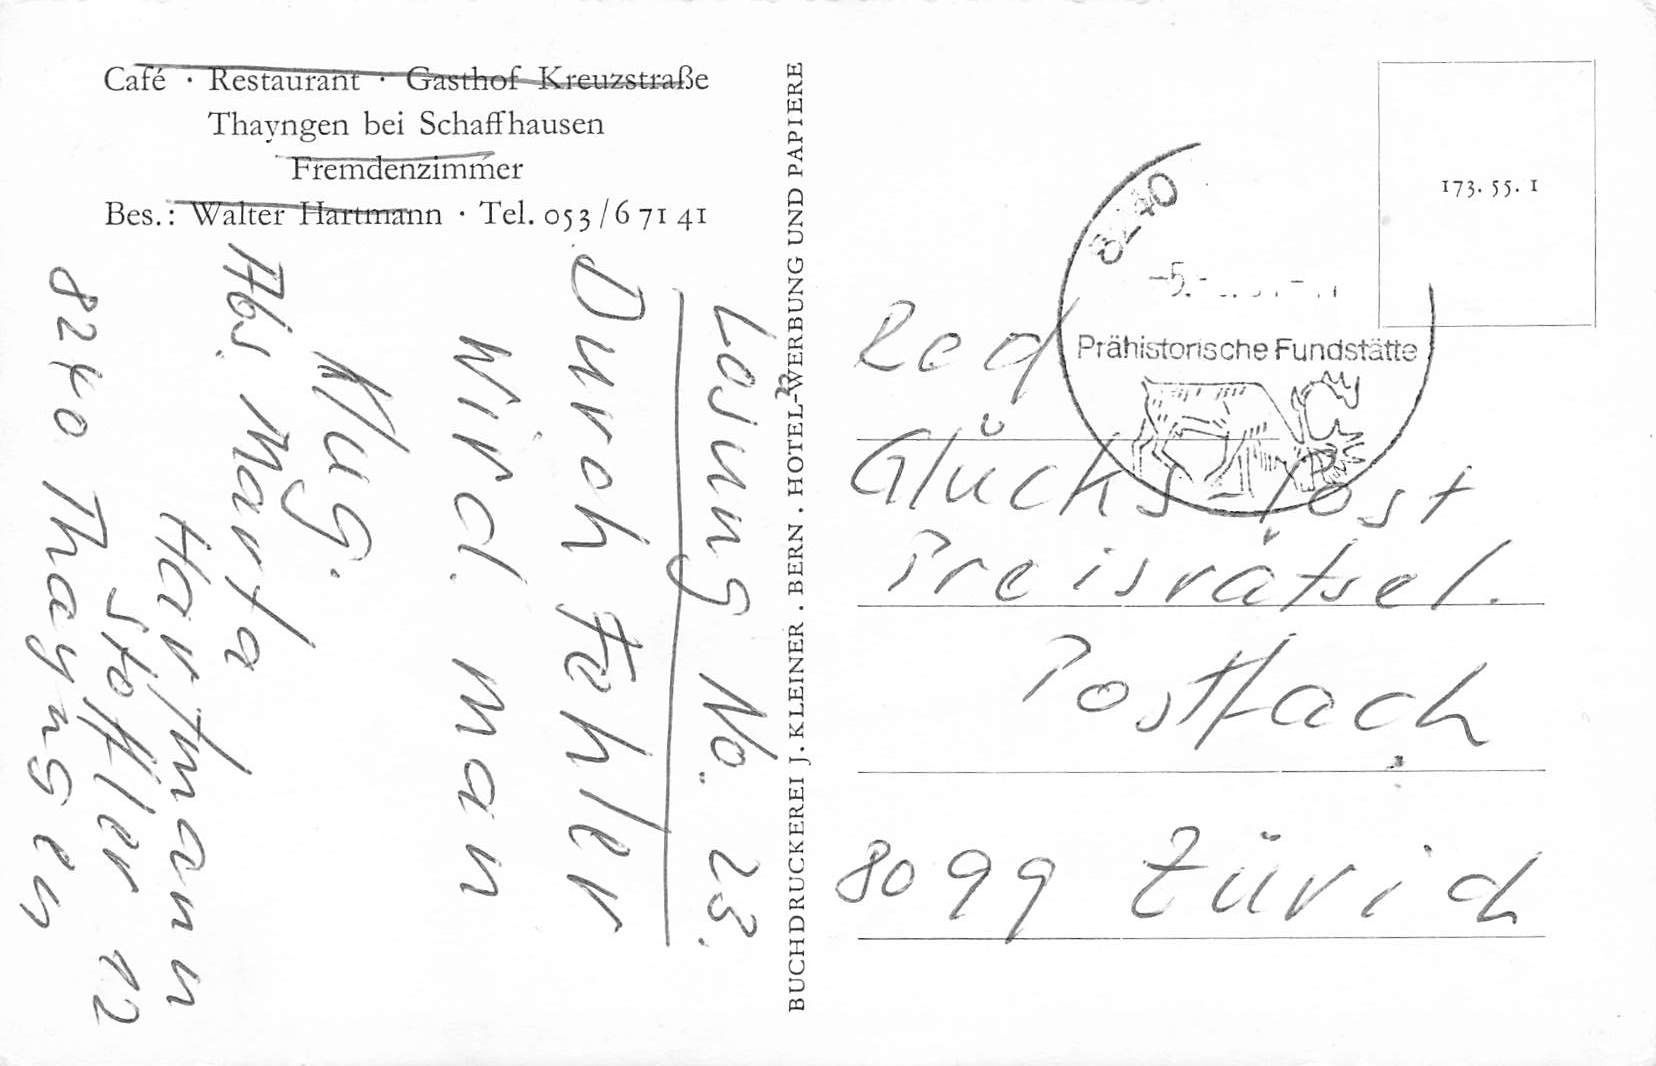 Café · Restaurant · Gasthof Kreuzstraße
Thayngen bei Schaffhausen
Fremdenzimmer
Bes.: Walter Hartmann · Tel. 053/6 71 41
Losung No. 23.
Durch Fehler
wird man
Klug.
Abs. Marta
Hartmann
Stoffler 12
8240 Thayngen
BUCHDRUCKEREI J. KLEINER . BERN . HOTEL-WERBUNG UND PAPIERE
173. 55. 1
8240
Prähistorische Fundstätte
Red
Glücks-Post
Preisrätsel.
Postfach
8099 Zürich